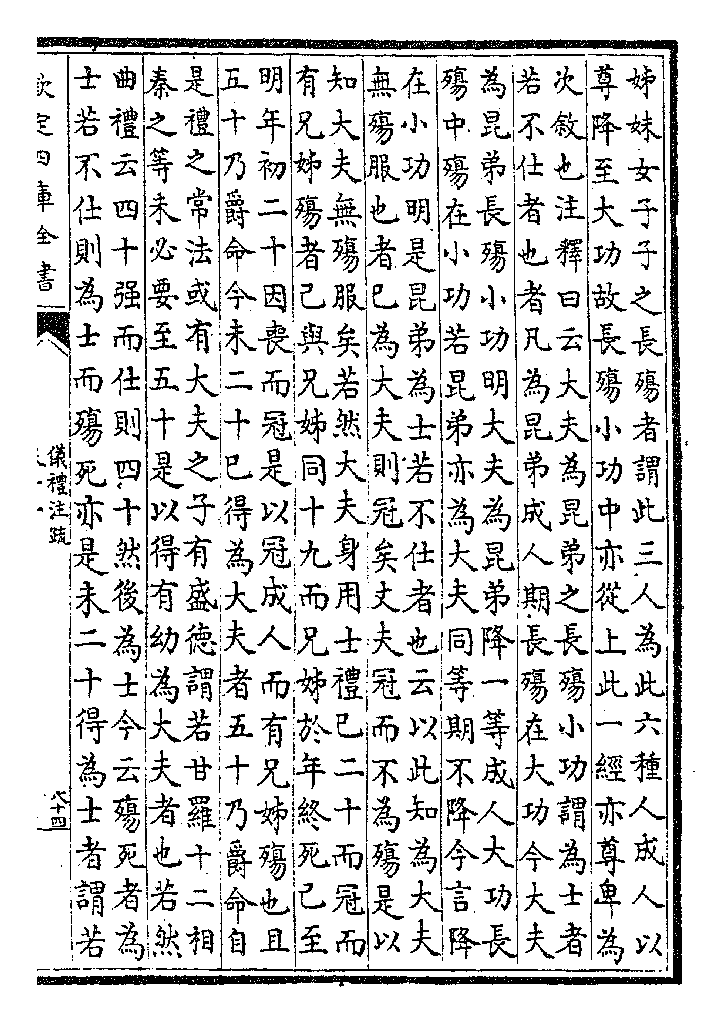 姊妹女子子之長殤者謂此三人為此六種人成人以
尊降至大功故長殤小功中亦從上此一經亦尊卑為
次敘也注釋曰云大夫為昆弟之長殤小功謂為士者
若不仕者也者凡為昆弟成人期長殤在大功今大夫
為昆弟長殤小功明大夫為昆弟降一等成人大功長
殤中殤在小功若昆弟亦為大夫同等期不降今言降
在小功明是昆弟為士若不仕者也云以此知為大夫
無殤服也者已為大夫則冠矣丈夫冠而不為殤是以
知大夫無殤服矣若然大夫身用士禮已二十而冠而
有兄姊殤者己與兄姊同十九而兄姊於年終死已至
明年初二十因喪而冠是以冠成人而有兄姊殤也且
五十乃爵命今未二十已得為大夫者五十乃爵命自
是禮之常法或有大夫之子有盛德謂若甘羅十二相
秦之等未必要至五十是以得有幼為大夫者也若然
曲禮云四十强而仕則四十然後為士今云殤死者為
士若不仕則為士而殤死亦是未二十得為士者謂若
欽定四庫全書
儀禮注疏
六十四